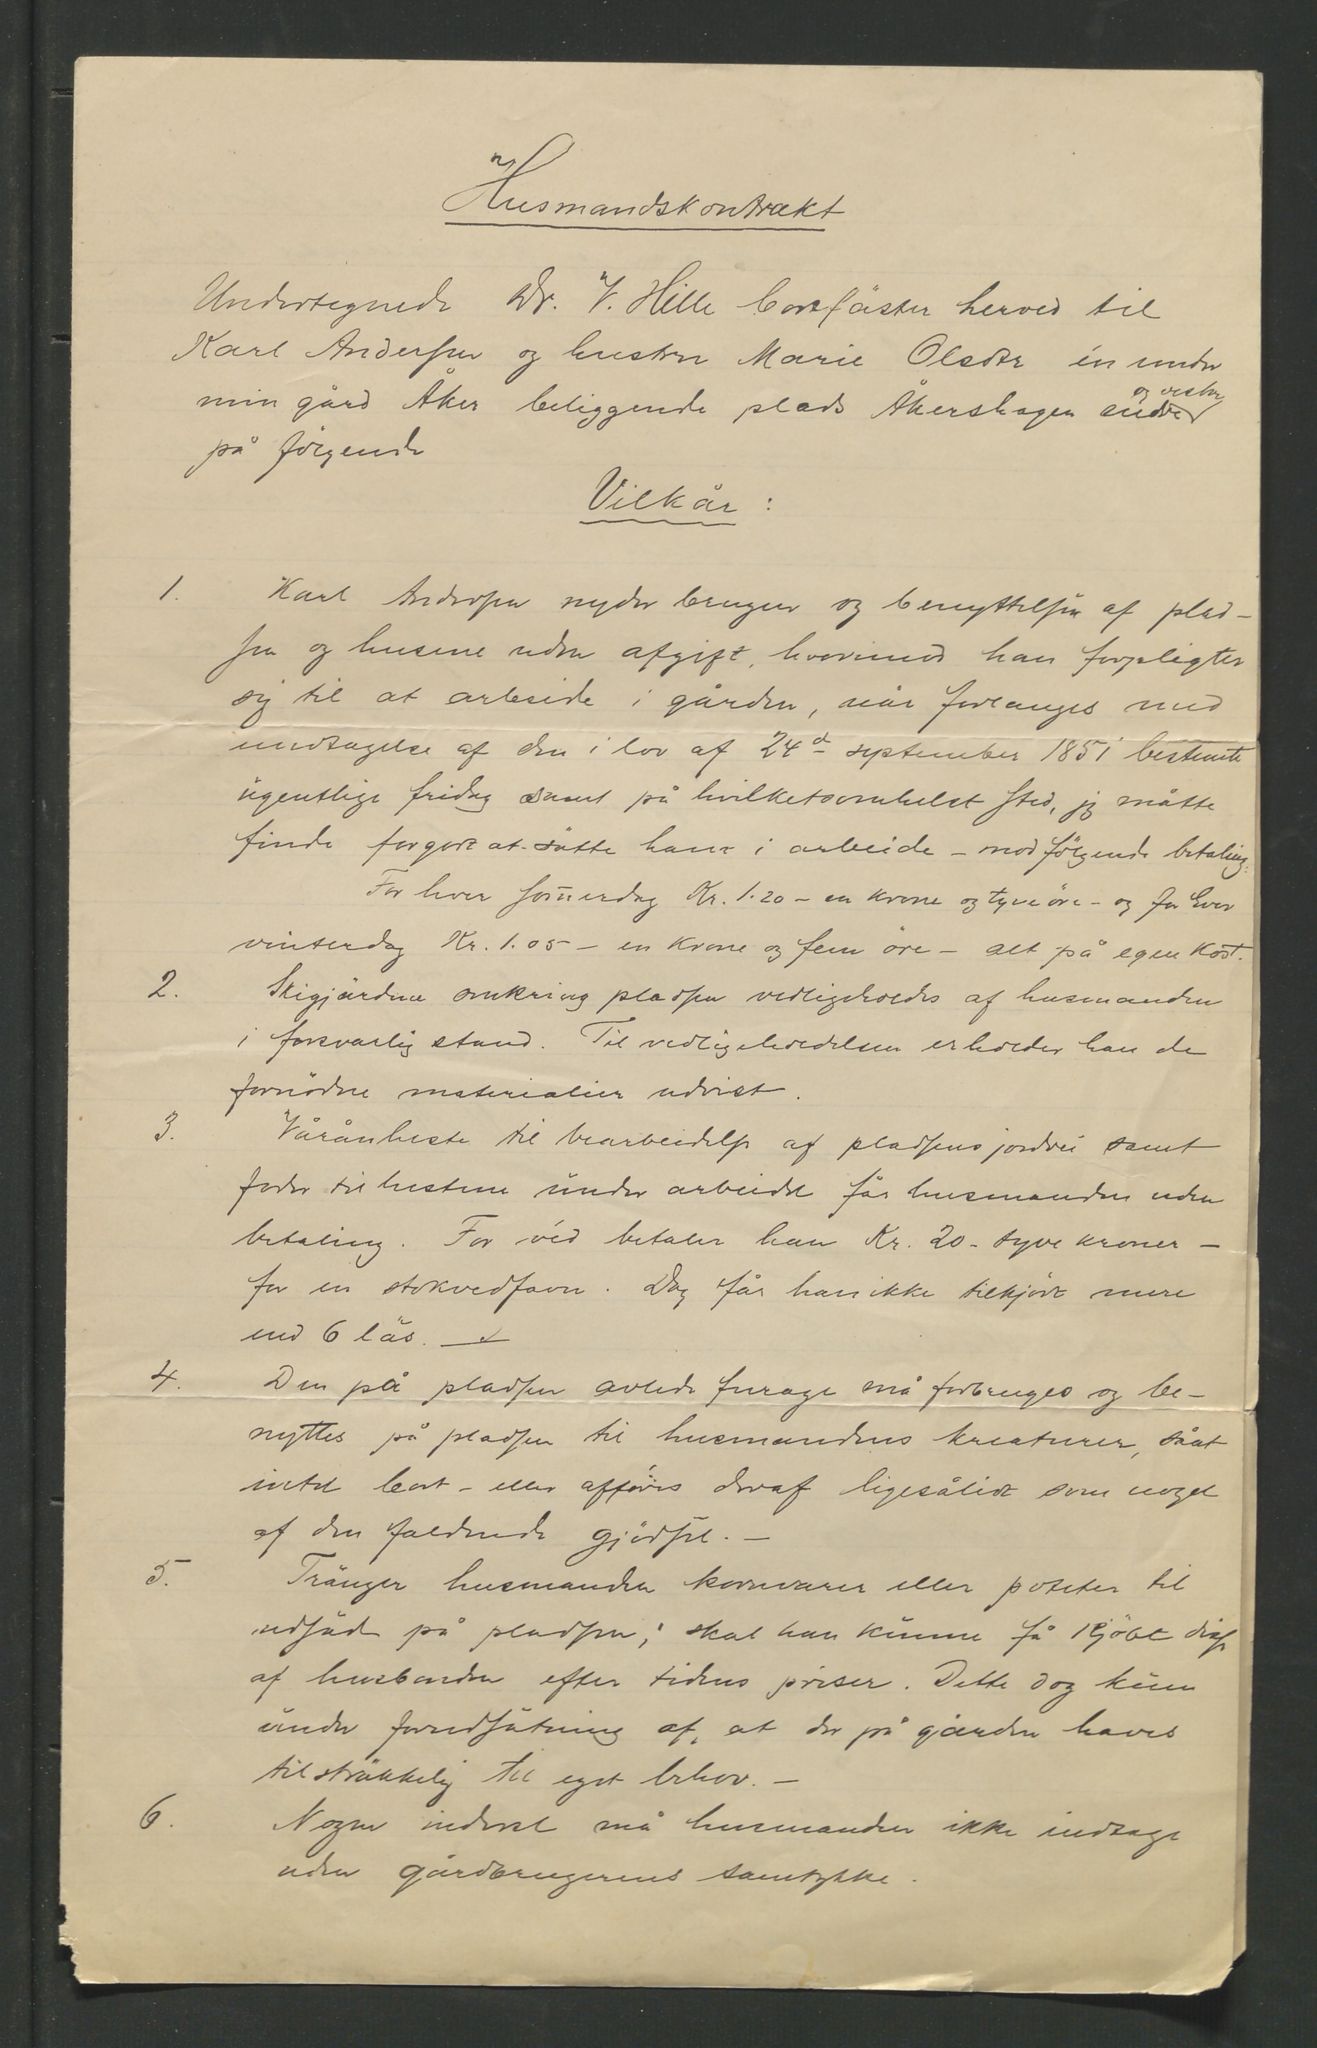 Husmandskontrakt
Undertegnede Dr. V. Hille bortfäster herved til
Karl Andersen og hustru Marie Olsdtr én under
min gård Åker beliggende plads Åkershagen
og vestre
søndre
på følgende
Vilkår:
1. Karl Andersen nyder brugen og benyttelsen af plad-
sen og husene uden afgift, hvorimod han forpligter
sig til at arbeide i gården, når forlanges med
undtagelse af den i lov af 24d september 1851 bestemte
ugentlige fridag samt på hvilketsomhelst sted, jeg måtte
finde forgodt at sätte ham i arbeide – mod følgende betaling:
For hver sommerdag Kr. 1.20 – en krone og tyve öre – og for hver
vinterdag Kr. 1.05 – en krone og fem öre – alt på egen kost.
2. Skigjärdene omkring pladsen vedligeholdes af husmanden
i forsvarlig stand. Til vedligeholdelsen erholder han de
fornödne materialier udvist.
3. Våranheste til bearbeidelse af pladsens jordvei samt
foder til hestene under arbeidet får husmanden uden
betaling. For véd betaler han Kr. 20 – tyve kroner –
for en stokvedfavn. Dog får han ikke tilkjört mere
end 6 läs. –
4. Den på pladsen avlede furage må forbruges og be-
nyttes på pladsen til husmandens kreaturer, såat
intet bort- eller afføres deraf ligesålidt som noget
af den faldende gjödsel. –
5. Tränger husmanden kornvarer eller poteter til
udsäd på pladsen, skal han kunne få kjöbt disse
af husbonden efter tidens priser. Dette dog kun
under forudsätning af, at der på gården haves
tilsträkkelig til eget behov. –
6. Nogen inderst må husmanden ikke indtage
uden gårdbrugerens samtykke.